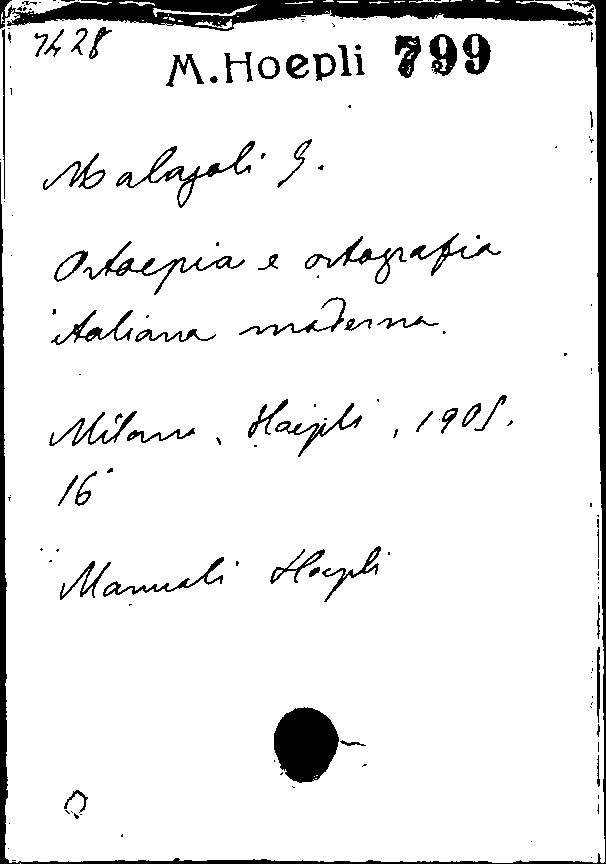 7428
M.Hoepli 799
Malagoli G.
Ortoepia e ortografia
italiana moderna.
Milano, Hoepli, 1905.
16°
Manuali Hoepli